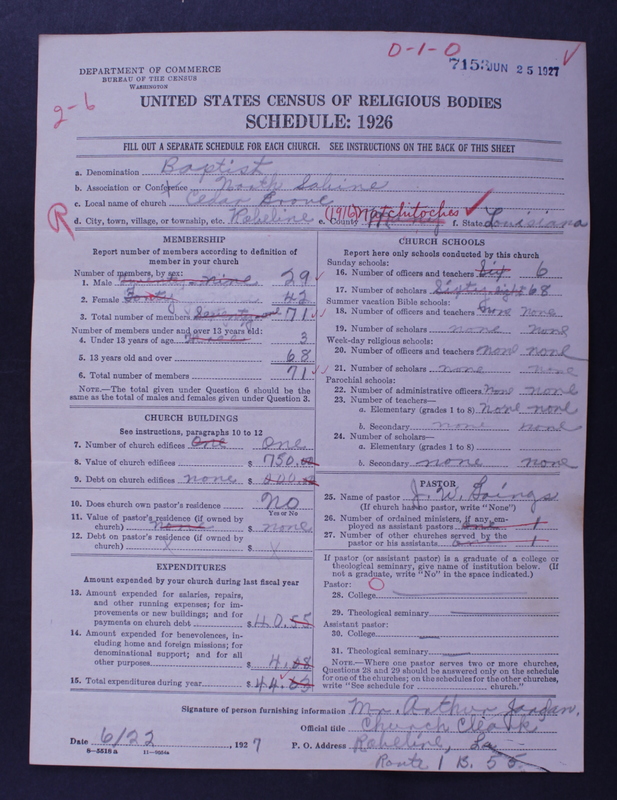 D-1-0
7153 JUN 25 1927
DEPARTMENT OF COMMERCE
BUREAU OF THE CENSUS
WASHINGTON
2-6
UNITED STATES CENSUS OF RELIGIOUS BODIES
SCHEDULE: 1926
FILL OUT A SEPARATE SCHEDULE FOR EACH CHURCH. SEE INSTRUCTIONS ON THE BACK OF THIS SHEET
a. Denomination Baptist
b. Association or Conference North Sabine
c. Local name of church Cedar Grove
R
d. City, town, village, or township, etc. Robeline e. County (1916) Natchitoches f. State Louisiana
MEMBERSHIP
Report number of members according to definition of
member in your church
Number of members, by sex:
1. Male Twenty-nine 29
2. Female Forty 42
3. Total number of members Seventy one 71
Number of members under and over 13 years old:
4. Under 13 years of age Three 3
5. 13 years old and over 68
6. Total number of members 71
NOTE.—The total given under Question 6 should be the
same as the total of males and females given under Question 3.
CHURCH BUILDINGS
See instructions, paragraphs 10 to 12
7. Number of church edifices One One
8. Value of church edifices $ 750.00
9. Debt on church edifices none $ 200.00
10. Does church own pastor's residence No
Yes or No
11. Value of pastor's residence (if owned by
church) None $ none
12. Debt on pastor's residence (if owned by
church) X $ X
EXPENDITURES
Amount expended by your church during last fiscal year
13. Amount expended for salaries, repairs,
and other running expenses; for im-
provements or new buildings; and for
payments on church debt $ 40.55
14. Amount expended for benevolences, in-
cluding home and foreign missions; for
denominational support; and for all
other purposes $ 4.08
15. Total expenditures during year $ 44.63
CHURCH SCHOOLS
Report here only schools conducted by this church
Sunday schools:
16. Number of officers and teachers Six 6
17. Number of scholars Sixty-eight 68
Summer vacation Bible schools:
18. Number of officers and teachers None None
19. Number of scholars none None
Week-day religious schools:
20. Number of officers and teachers none none
21. Number of scholars none none
Parochial schools:
22. Number of administrative officers None none
23. Number of teachers—
a. Elementary (grades 1 to 8) None none
b. Secondary none none
24. Number of scholars—
a. Elementary (grades 1 to 8)
b. Secondary none none
PASTOR
25. Name of pastor J. W. Goings
(If church has no pastor, write "None")
26. Number of ordained ministers, if any, em-
ployed as assistant pastors one 1
27. Number of other churches served by the
pastor or his assistants one 1
If pastor (or assistant pastor) is a graduate of a college or
theological seminary, give name of institution below. (If
not a graduate, write "No" in the space indicated.)
Pastor: O
28. College
29. Theological seminary
Assistant pastor:
30. College
31. Theological seminary
NOTE.—Where one pastor serves two or more churches,
Questions 28 and 29 should be answered only on the schedule
for one of the churches; on the schedules for the other churches,
write "See schedule for church."
Signature of person furnishing information Mr. Arthur
Official title Church Clerk
Date 6/22, 1927 P. O. Address Robeline, La
8-5518 a 11-9004a
Route 1 B. 55